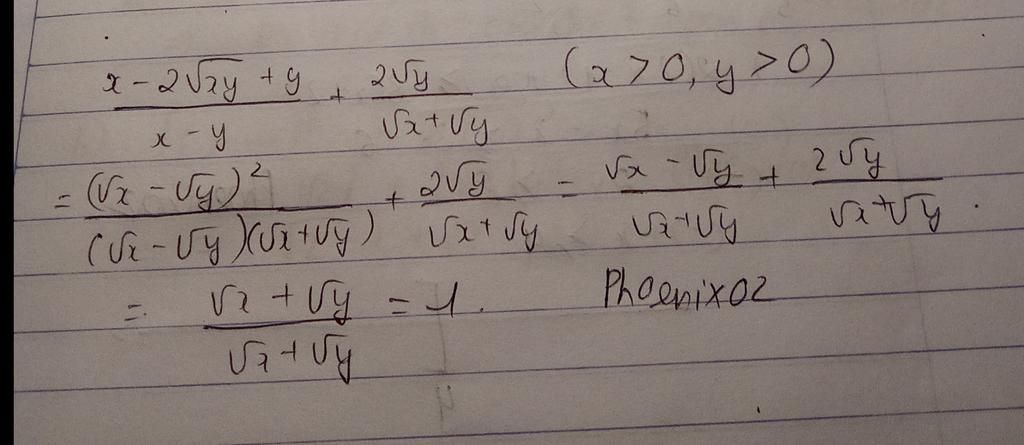 x - 2√xy + y / x - y + 2√y / √x + √y (x > 0, y > 0)
= (√x - √y)² / (√x - √y)(√x + √y) + 2√y / √x + √y = √x - √y / √x + √y + 2√y / √x + √y .
= √x + √y / √x + √y = 1. Phoenix02